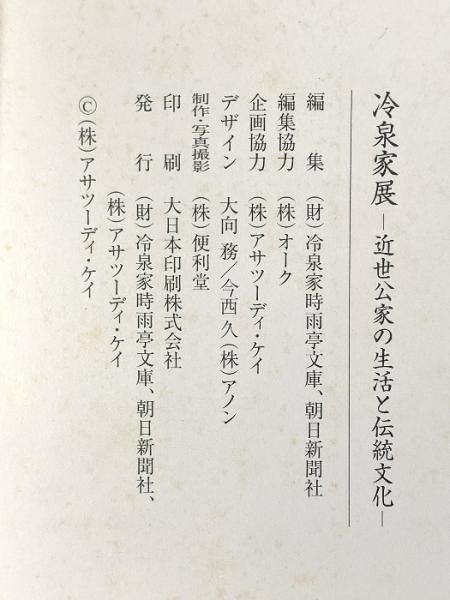 冷泉家展―近世公家の生活と伝統文化―
編集 (財)冷泉家時雨亭文庫、朝日新聞社
編集協力 (株)オーク
企画協力 (株)アサツーディ・ケイ
デザイン 大向 務／今西 久(株)アノン
制作・写真撮影 (株)便利堂
印刷 大日本印刷株式会社
発行 (財)冷泉家時雨亭文庫、朝日新聞社、
(株)アサツーディ・ケイ
©(株)アサツーディ・ケイ